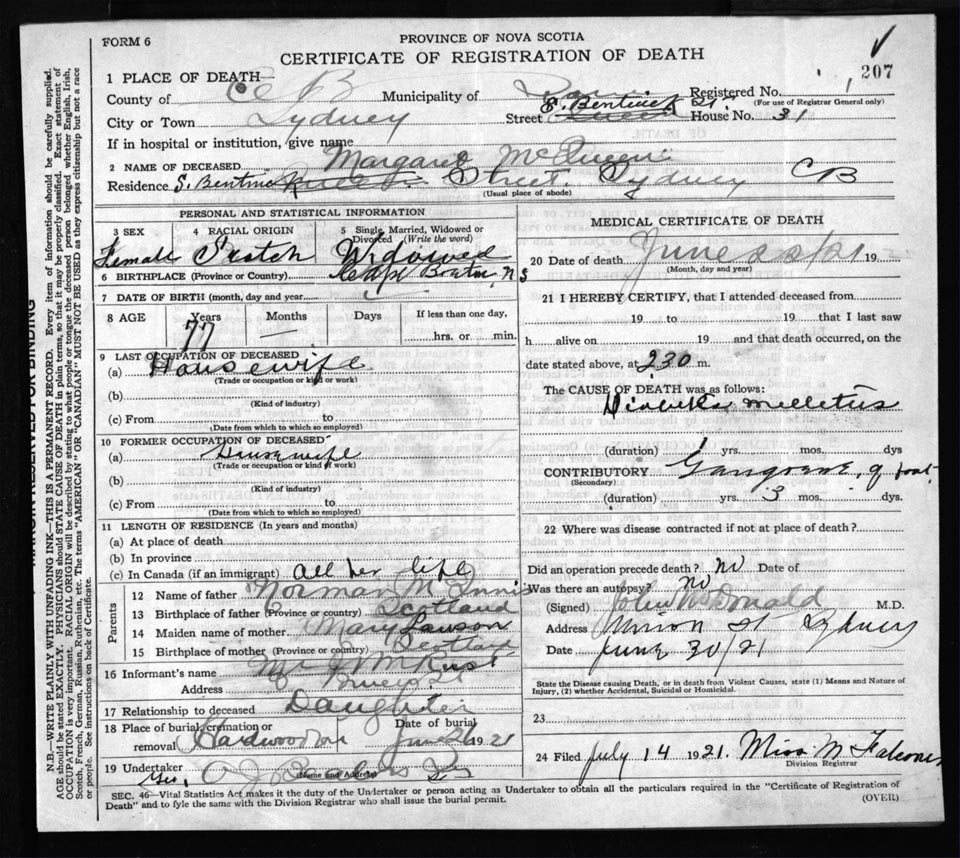 FORM 6
PROVINCE OF NOVA SCOTIA
CERTIFICATE OF REGISTRATION OF DEATH
207
1 PLACE OF DEATH—
County of C B Municipality of Registered No. 1
(For use of Registrar General only)
City or Town Sydney Street S. Bentinck St. House No. 31
If in hospital or institution, give name
2 NAME OF DECEASED Margaret McQueen
Residence S. Bentinc Street. Sydney CB
(Usual place of abode)
PERSONAL AND STATISTICAL INFORMATION
3 SEX 4 RACIAL ORIGIN 5 Single, Married, Widowed or Divorced (Write the word)
Female Scotch Widowed
6 BIRTHPLACE (Province or Country) Cape Breton, N S
7 DATE OF BIRTH (month, day and year)
8 AGE Years Months Days If less than one day,
77 — hrs. or min.
9 LAST OCCUPATION OF DECEASED
(a) Housewife
(Trade or occupation or kind of work)
(b)
(Kind of industry)
(c) From to
(Date from which to which so employed)
10 FORMER OCCUPATION OF DECEASED
(a) Housewife
(Trade or occupation or kind of work)
(b)
(Kind of industry)
(c) From to
(Date from which to which so employed)
11 LENGTH OF RESIDENCE (In years and months)
(a) At place of death
(b) In province
(c) In Canada (if an immigrant) all her life
Parents
12 Name of father Norman McInnis
13 Birthplace of father (Province or country) Scotland
14 Maiden name of mother Mary Lawson
15 Birthplace of mother (Province or Country) Scotland
16 Informant's name
Address
17 Relationship to deceased Daughter
18 Place of burial, cremation or removal Hardwood Date of burial June 1921
19 Undertaker
(Name and Address)
MEDICAL CERTIFICATE OF DEATH
20 Date of death June 21 19
(Month, day and year)
21 I HEREBY CERTIFY, that I attended deceased from
19 to 19 that I last saw
h alive on 19 and that death occurred, on the
date stated above, at 230 m.
The CAUSE OF DEATH was as follows:
Diabetes melletus
(duration) 1 yrs. mos. dys
CONTRIBUTORY Gangrene of foot
(Secondary)
(duration) yrs. 3 mos. dys.
22 Where was disease contracted if not at place of death?
Did an operation precede death? no Date of
Was there an autopsy? no
(Signed) John McDonald M.D.
Address St Sydney
Date June 30/21
State the Disease causing Death, or in death from Violent Causes, state (1) Means and Nature of
Injury, (2) whether Accidental, Suicidal or Homicidal.
23
24 Filed July 14 1921. Miss M
Division Registrar
SEC. 46—Vital Statistics Act makes it the duty of the Undertaker or person acting as Undertaker to obtain all the particulars required in the "Certificate of Registration of
Death" and to fyle the same with the Division Registrar who shall issue the burial permit.
(OVER)
MARGIN RESERVED FOR BINDING
N.B.—WRITE PLAINLY WITH UNFADING INK—THIS IS A PERMANENT RECORD. Every item of information should be carefully supplied.
AGE should be stated EXACTLY. PHYSICIANS should STATE CAUSE OF DEATH in plain terms, so that it may be properly classified. Exact statement of
OCCUPATION is very important. RACIAL ORIGIN will be described by stating to what people or tongue the deceased person belonged whether English, Irish,
Scotch, French, German, Russian, Ruthenian, etc. The terms "AMERICAN" or "CANADIAN" MUST NOT BE USED as they express citizenship but not a race
or people. See instructions on back of Certificate.